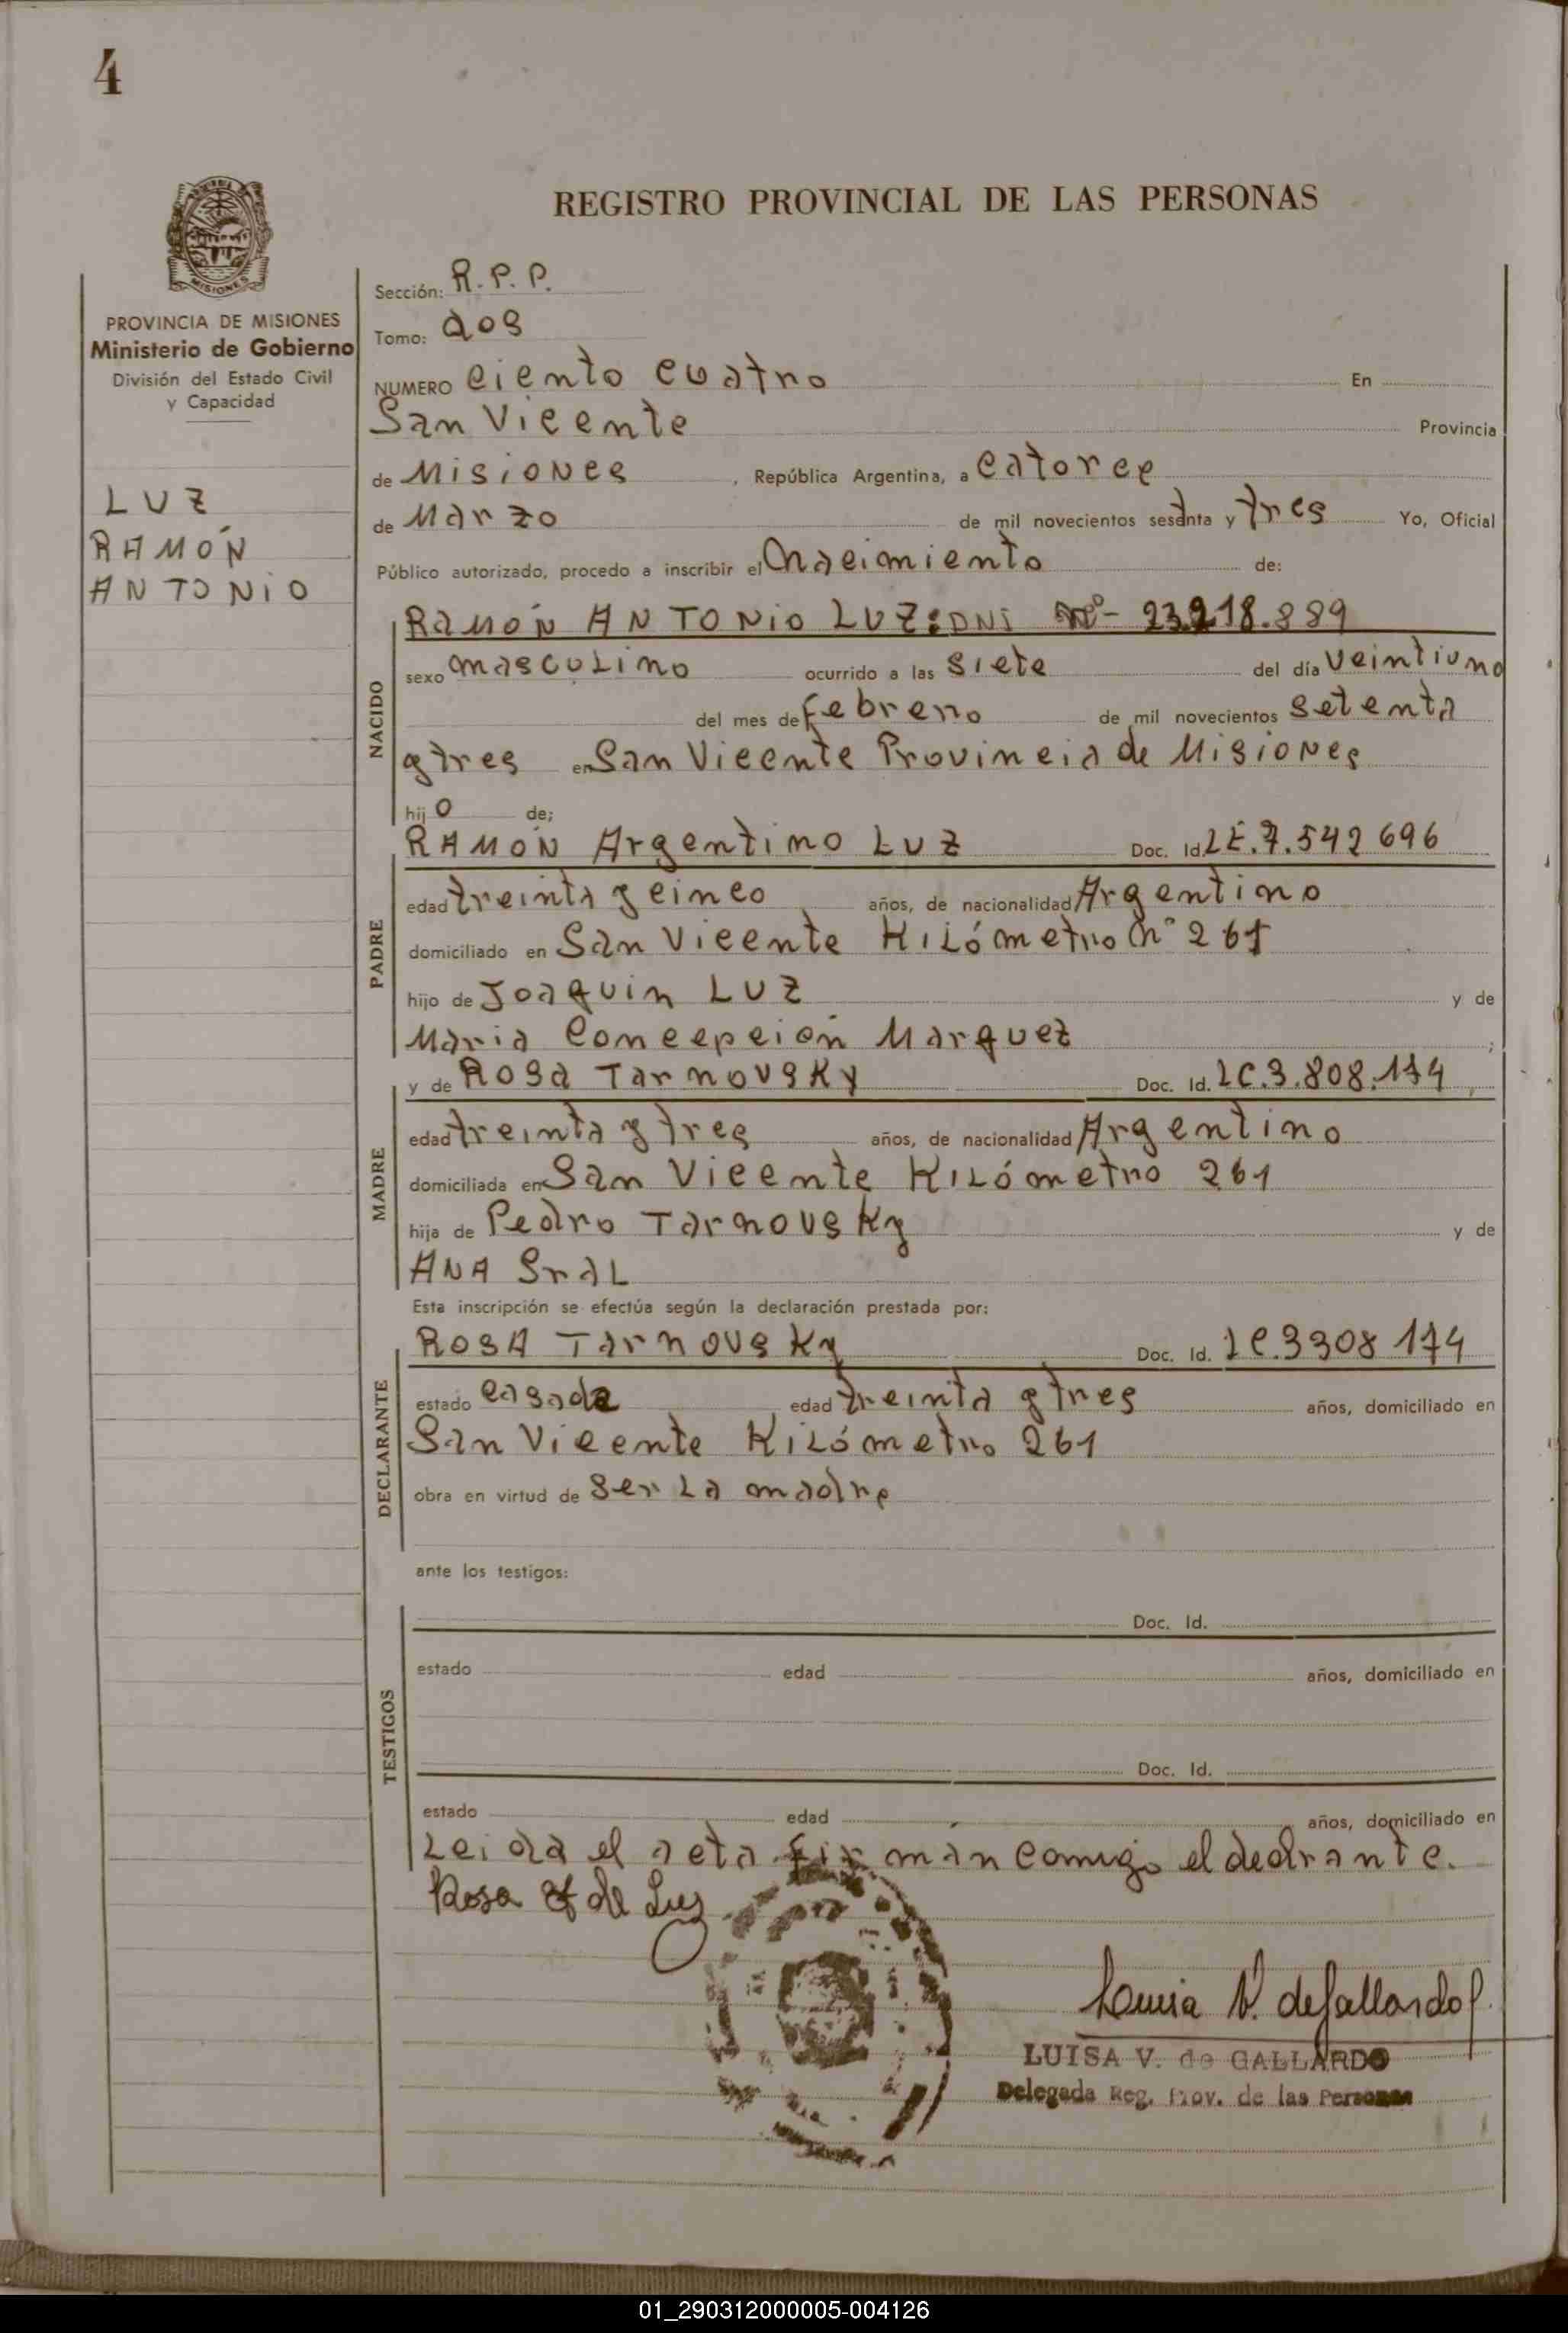 4
REGISTRO PROVINCIAL DE LAS PERSONAS
MISIONES
PROVINCIA DE MISIONES
Ministerio de Gobierno
División del Estado Civil
y Capacidad
LUZ
RAMÓN
ANTONIO
Sección: R.P.P.
Tomo: dos
NUMERO Ciento Cuatro En
San Vicente Provincia
de Misiones, República Argentina, a Catorce
de Marzo de mil novecientos sesenta y tres Yo, Oficial
Público autorizado, procedo a inscribir el Nacimiento de:
NACIDO
RAMÓN ANTONIO LUZ: DNI Nº- 23.218.889
sexo masculino ocurrido a las siete del día veintiuno
del mes de febrero de mil novecientos setenta
y tres en San Vicente Provincia de Misiones
hijo de;
PADRE
RAMÓN Argentino LUZ Doc. Id. LE.7.542696
edad treinta y cinco años, de nacionalidad Argentino
domiciliado en San Vicente Kilómetro nº 261
hijo de Joaquin LUZ y de
Maria Concepción Marquez;
MADRE
y de Rosa Tarnovsky Doc. Id. LC.3.808.174
edad treinta y tres años, de nacionalidad Argentino
domiciliada en San Vicente Kilómetro 261
hija de Pedro Tarnovsky y de
ANA SraL
Esta inscripción se efectúa según la declaración prestada por:
DECLARANTE
ROSA Tarnovsky Doc. Id. LC.3308174
estado Casada edad treinta y tres años, domiciliado en
San Vicente Kilómetro 261
obra en virtud de ser La madre
ante los testigos:
TESTIGOS
Doc. Id.
estado edad años, domiciliado en
Doc. Id.
estado edad años, domiciliado en
Leida el acta firman comigo el declrante.
Rosa T de Luz
Luisa V. de Gallardo
LUISA V. de GALLARDO
Delegada Reg. Prov. de las Personas
01_290312000005-004126